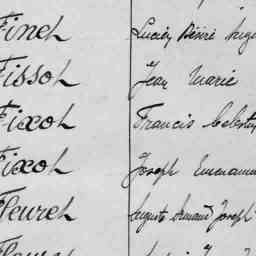 Finet Lucien Désiré
Fissot Jean Marie
Fixot Francis Célestin
Fixot Joseph Emmanuel
Fleuret Auguste Armand Joseph